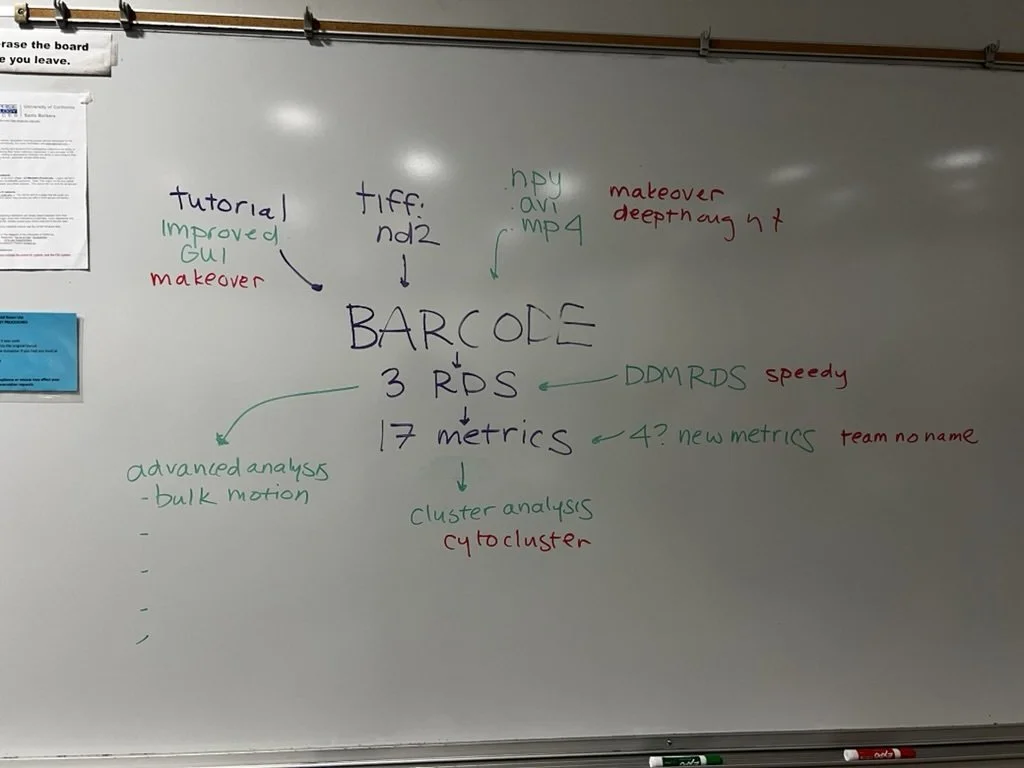 rase the board
e you leave.
University of California
Santa Barbara
tutorial
Improved
GUI
makeover
tiff.
nd2
.npy
.avi
.mp4
makeover
deepthoug ht
BARCODE
3 RDS
DDM RDS speedy
17 metrics
4? new metrics team no name
advanced analysis
- bulk motion
-
-
-
-
cluster analysis
cytocluster